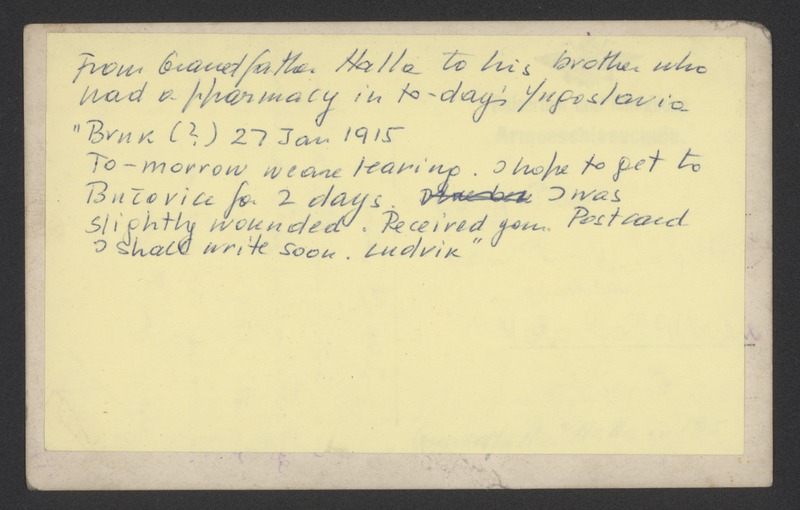 From Grandfather Halla to his brother who
had a pharmacy in to-day's Yugoslavia
"Bruk (?) 27 Jan 1915
To-morrow we are leaving. I hope to get to
Bučovice for 2 days. I was
slightly wounded. Received your Postcard
I shall write soon. Ludvik"